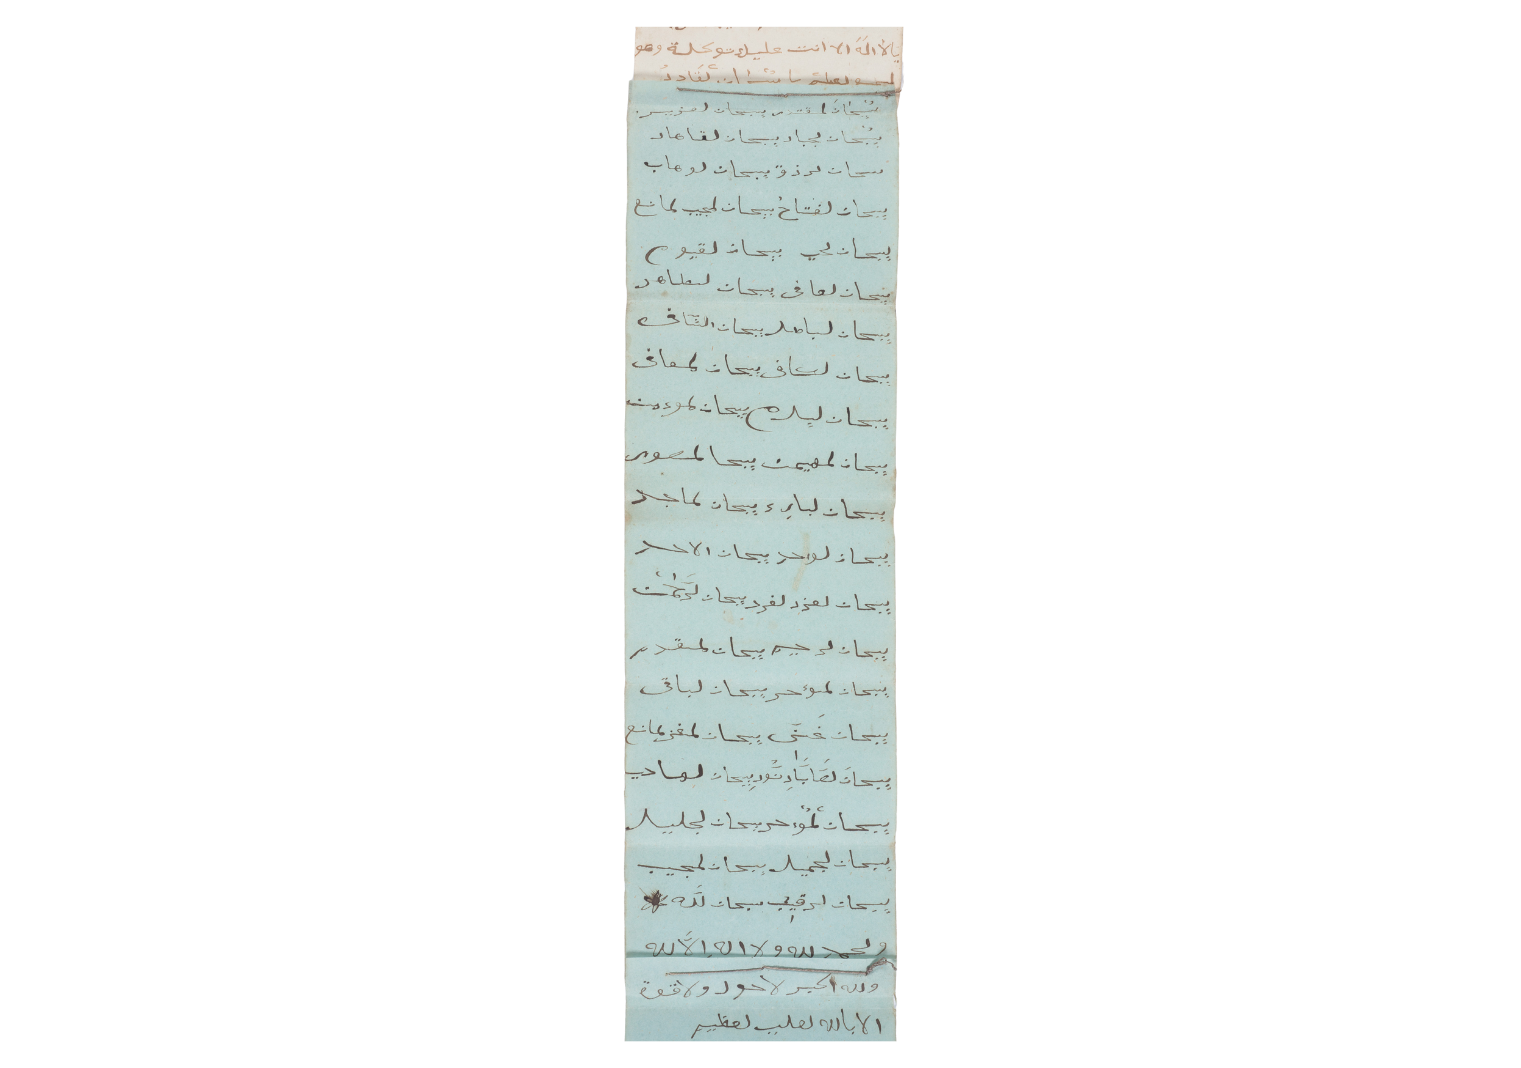 يالا اله الا انت عليك توكلت وهو
سبحان لجبار سبحان لقاهار
سبحان لرزق سبحان لوهاب
سبحان لفتاح سبحان لمجيب لمانع
سبحان لحي سبحان لقيوم
سبحان لعافي سبحان لظاهر
سبحان لباطل سبحان الشافى
سبحان لشافى سبحان لمعافى
سبحان لسلام سبحان لموءمن
سبحان لمهيمن سبحا لمصور
سبحان لبارء سبحان لماجد
سبحان لواحد سبحان الاحد
سبحان لعزد لفرد سبحان لرحمن
سبحان لرحيم سبحان لمقدم
سبحان لموءخر سبحان لباقى
سبحان غنى سبحان لمغن لمانع
سبحان سبحان لهادي
سبحان لموءخر سبحان لجليل
سبحان لجميل سبحان لمجيب
سبحان لرقيب سبحان لله
ولحمد لله ولا اله الا لله
ولله اكبر لا حول ولا قوة
الا بالله لعلي لعظيم